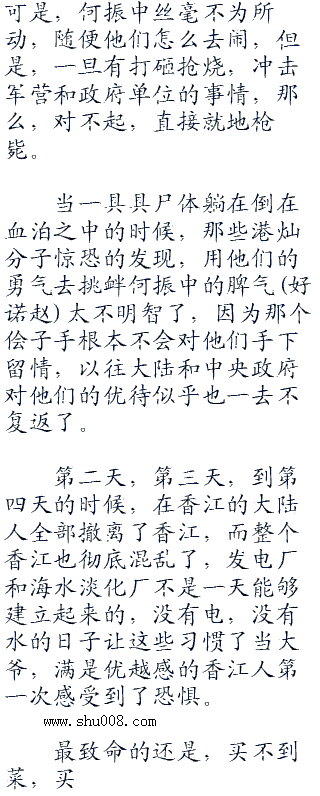 可是，何振中丝毫不为所
动，随便他们怎么去闹，但
是，一旦有打砸抢烧，冲击
军营和政府单位的事情，那
么，对不起，直接就地枪
毙。
当一具具尸体躺在倒在
血泊之中的时候，那些港灿
分子惊恐的发现，用他们的
勇气去挑衅何振中的脾气(好
诺赵)太不明智了，因为那个
侩子手根本不会对他们手下
留情，以往大陆和中央政府
对他们的优待似乎也一去不
复返了。
第二天，第三天，到第
四天的时候，在香江的大陆
人全部撤离了香江，而整个
香江也彻底混乱了，发电厂
和海水淡化厂不是一天能够
建立起来的，没有电，没有
水的日子让这些习惯了当大
爷，满是优越感的香江人第
一次感受到了恐惧。
www.shu008.com
最致命的还是，买不到
菜，买